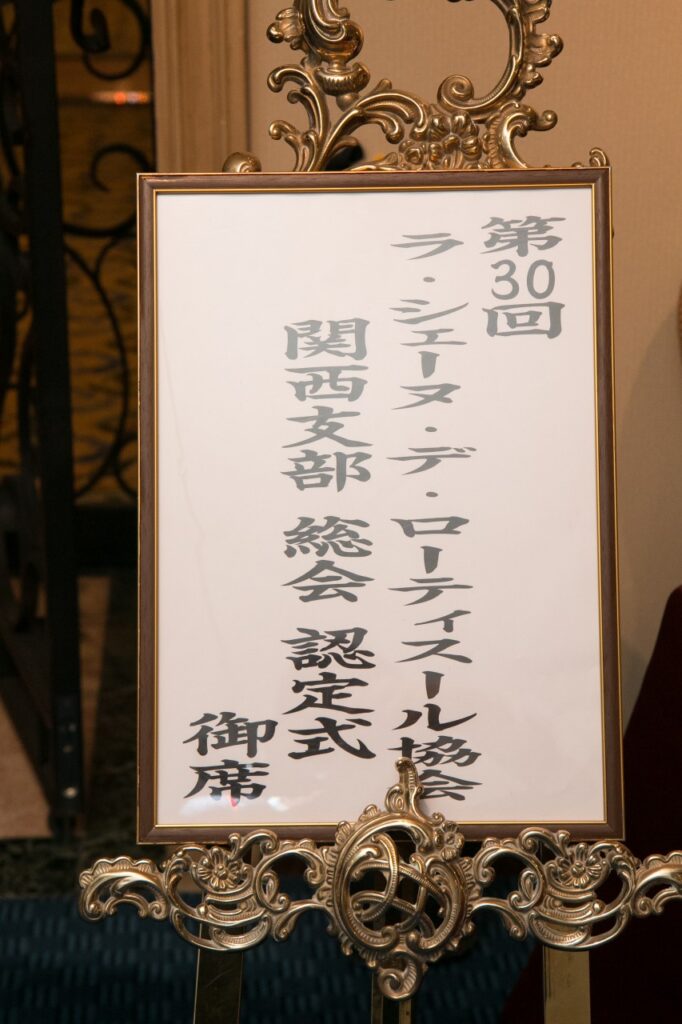 第30回
ラ・シェーヌ・デ・ローティスール協会
関西支部 総会 認定式
御席